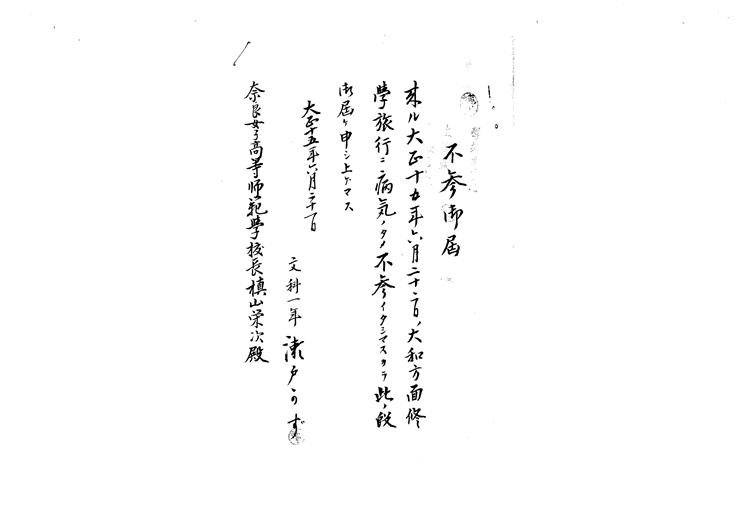 不参御届
来ル大正十五年六月二十二日ノ大和方面修
學旅行ニ病気ノタメ不参イタシマスカラ此ノ段
御届ケ申シ上ゲマス
大正十五年六月二十一日
文科一年 瀬戸うす
奈良女子高等師範學校長槙山栄次殿